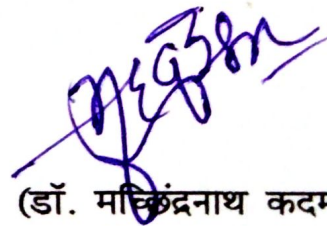 (डॉ. मच्छिंद्रनाथ कदम